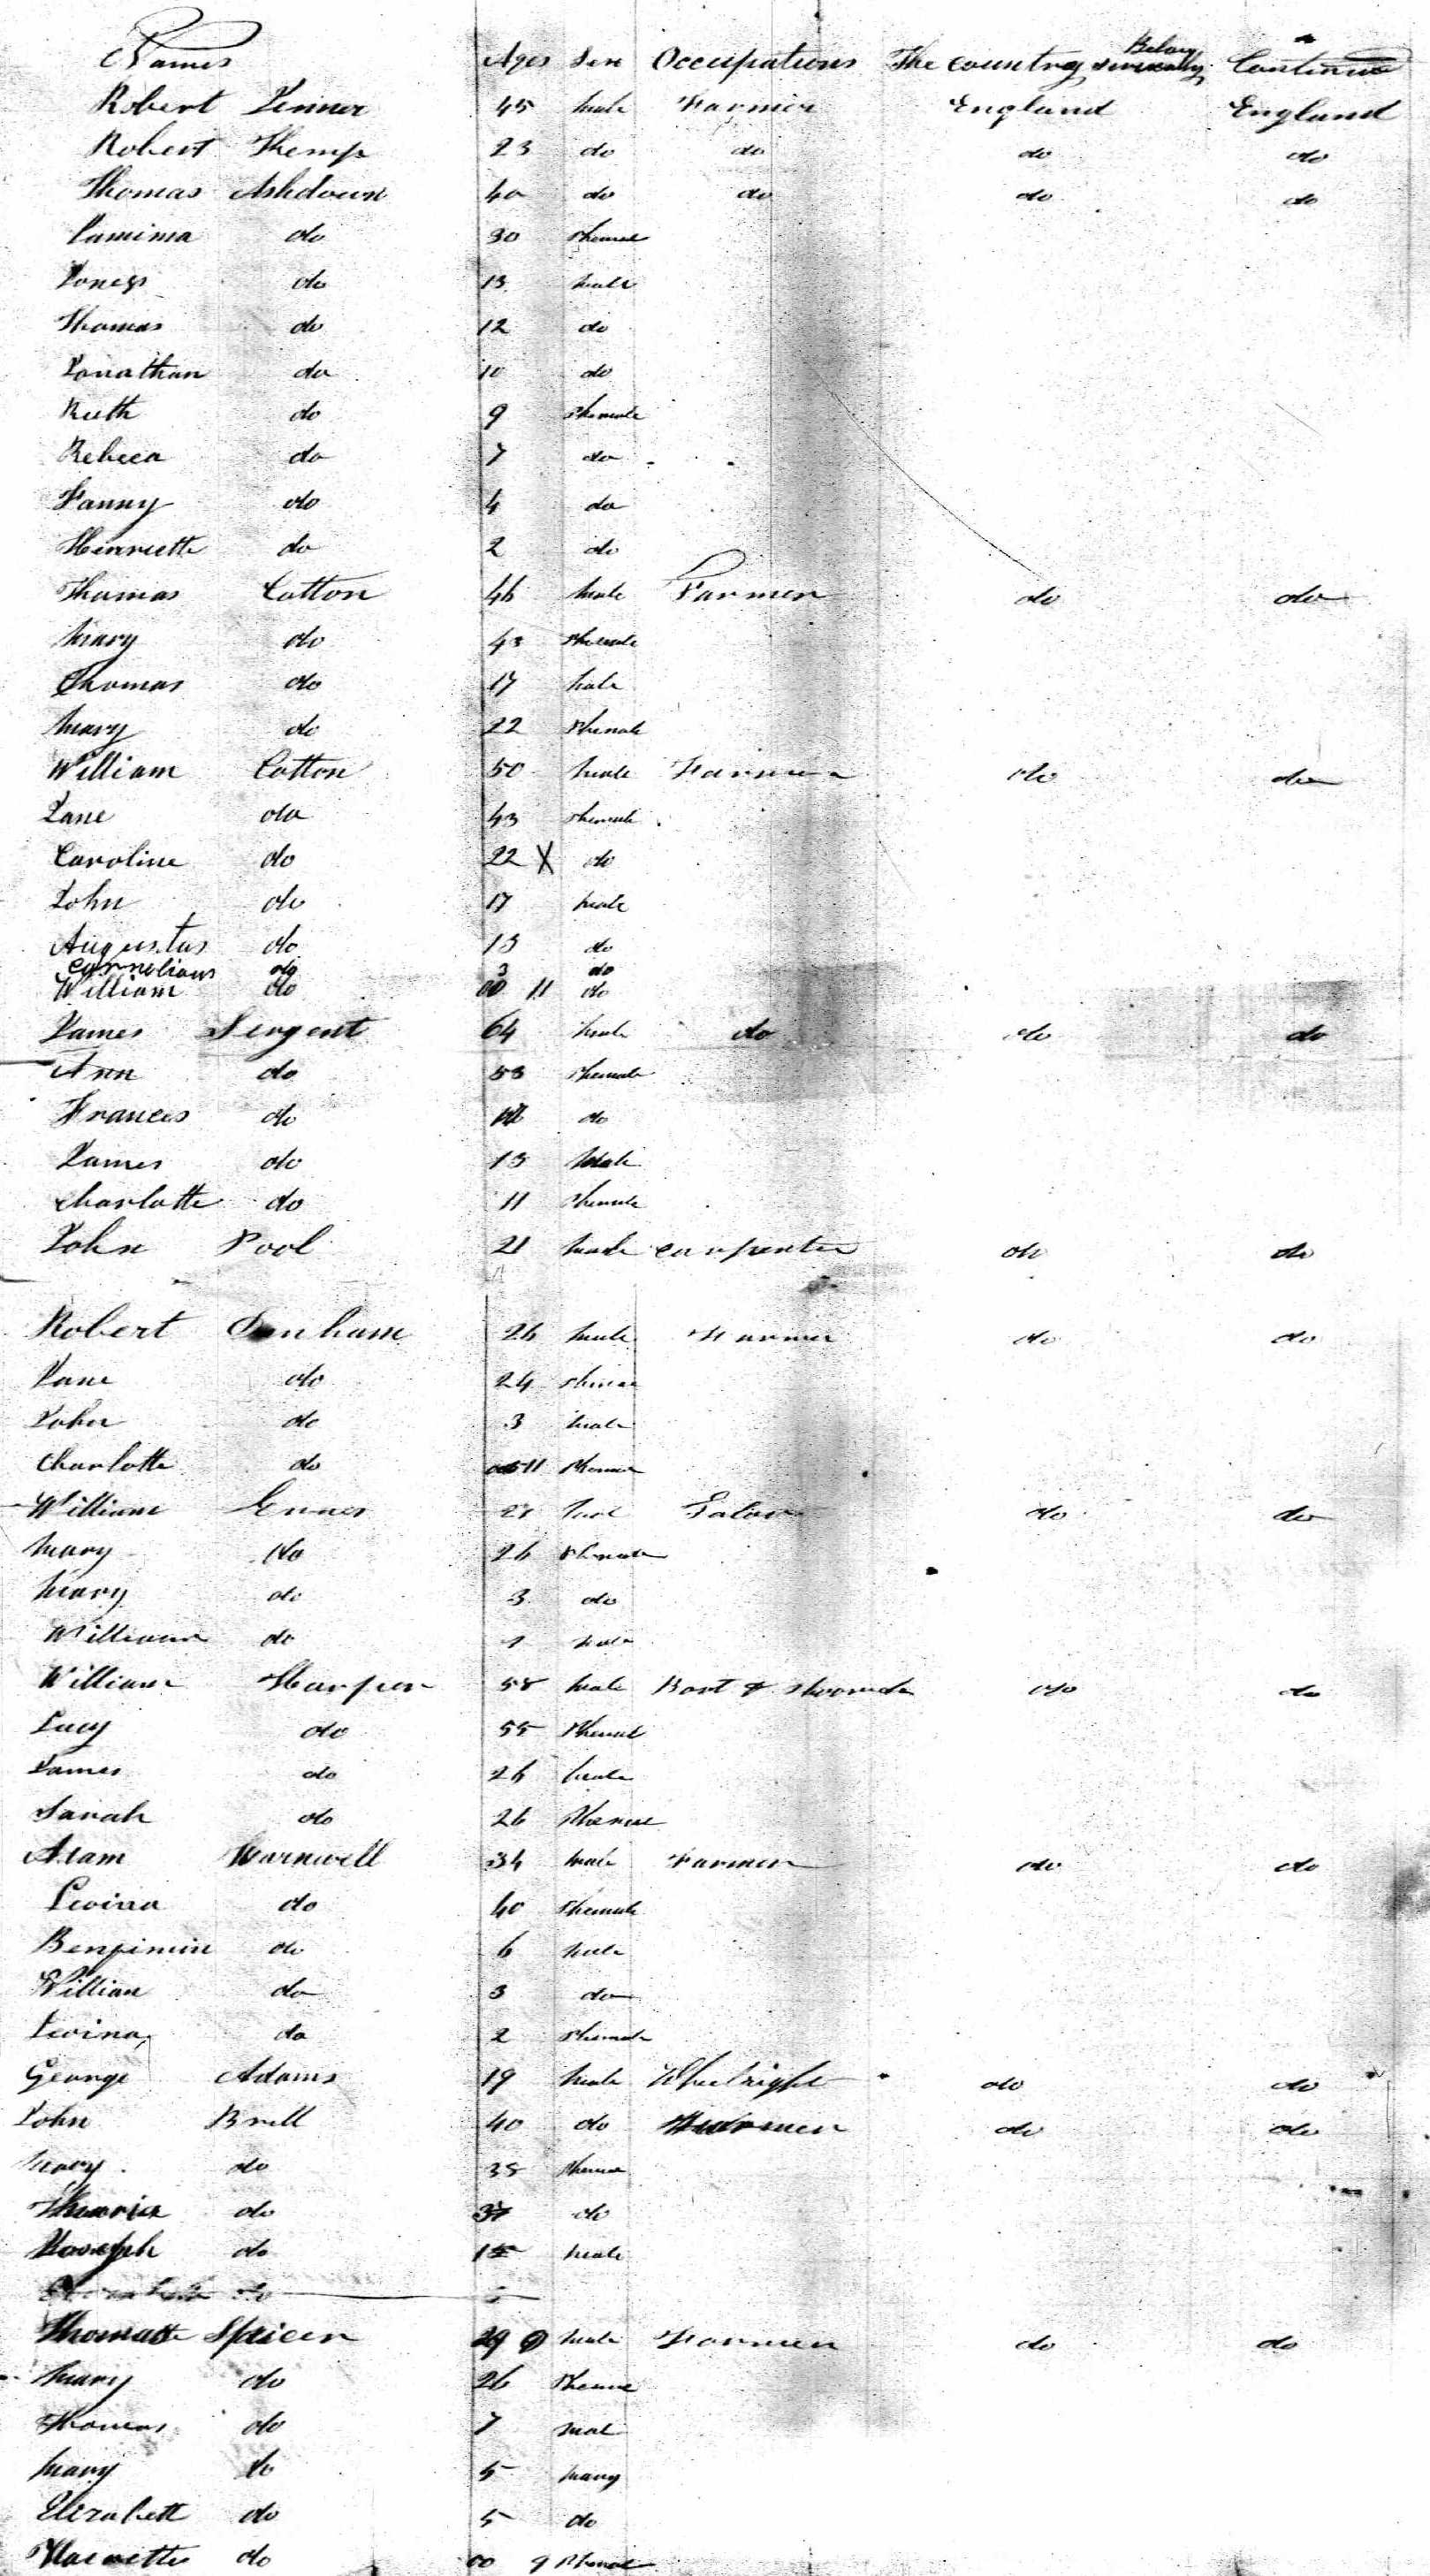 Names Ages Sex Occupations The country Belong severaly Continue
Robert Venner 45 male Farmer England England
Robert Khemp 23 do do do do
Thomas Ashdown 40 do do do do
Jamima do 30 Phemale
Jones do 13 male
Thomas do 12 do
Jonathan do 10 do
Ruth do 9 Phemale
Rebeca do 7 do
Fanny do 4 do
Henriette do 2 do
Thomas Cotton 46 male Farmer do do
Mary do 43 Phemale
Thomas do 17 male
Mary do 22 Phemale
William Cotton 50 male Farmer do do
Jane do 43 Phemale
Caroline do 22 X do
John do 17 male
Augustus do 13 do
Cornelious do 3 do
William do 00 11 do
James Sergent 64 male do do do
Ann do 53 Phemale
Frances do do
James do 13 male
Charlotte do 11 Phemale
John Pool 21 male carpenter do do
Robert Denham 26 male Farmer do do
Jane do 24 Phemale
John do 3 male
Charlotte do 11 Phemale
William 27 male do do
Mary do 26 Phemale
Mary do 3 do
William do 1 male
William Harper 58 male Boot & Shoomak do do
Lucy do 55 Phemal
James do 26 male
Sarah do 26 Phemale
Adam Warnwell 34 male Farmer do do
Levina do 40 Phemale
Benjimin do 6 male
William do 3 do
Levina do 2 Phemale
George Adams 19 male Wheelright do do
John Brill 40 do Farmer do do
Mary do 38 Phemale
do do
Joseph do 15 male
do
Thomas Spicer 29 male Farmer do do
Mary do 26 Phemale
Thomas do 7 male
Mary do 5 Mary
Elizabett do 5 do
Hariette do 00 9 Phemale